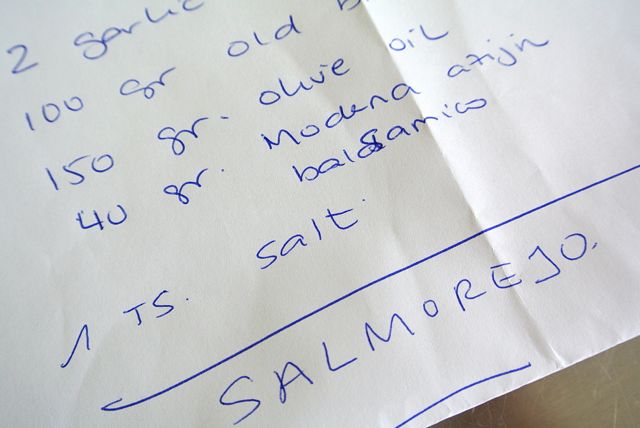 2 garlic
100 gr old
150 gr. olive oil
40 gr. Modena azijn
balsamico
1 TS. salt.
SALMOREJO.